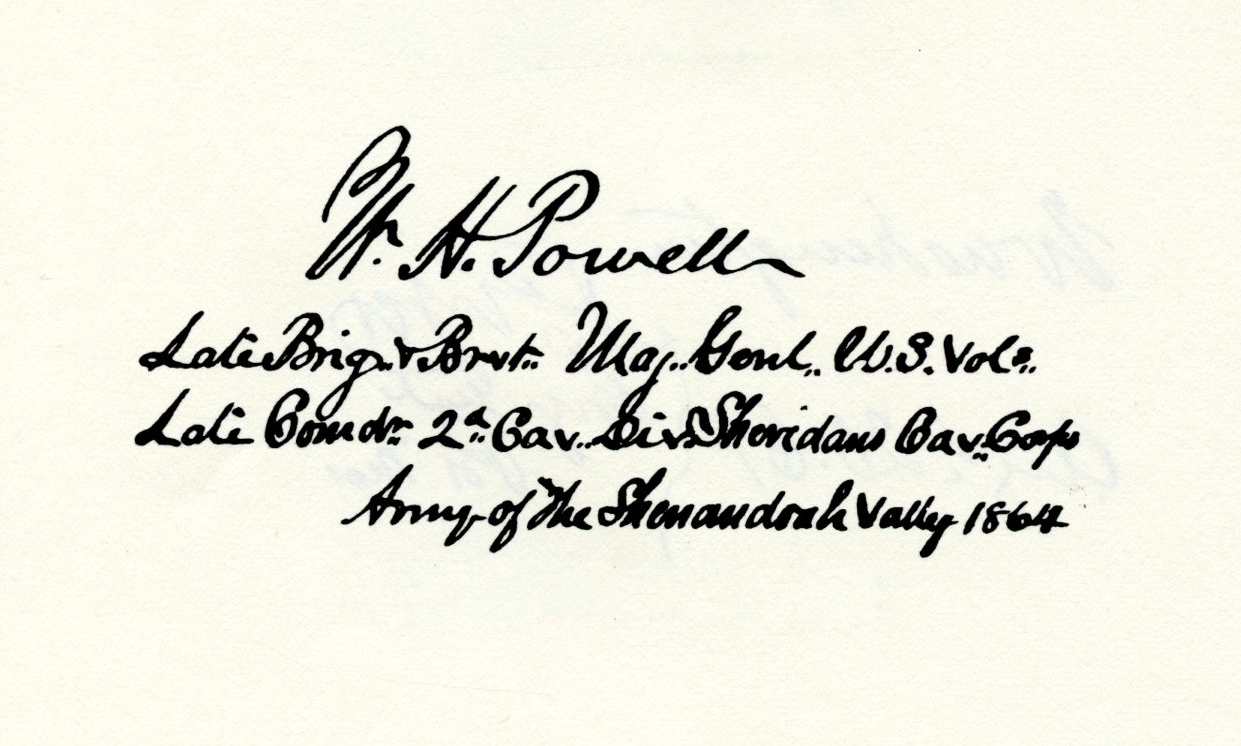 Wm. H. Powell
Late Brig. & Brvt. Maj. Genl. U.S. Vols.
Late Comdr. 2d. Cav. Div. Sheridans Cav. Corps
Army of the Shenandoah Valley 1864